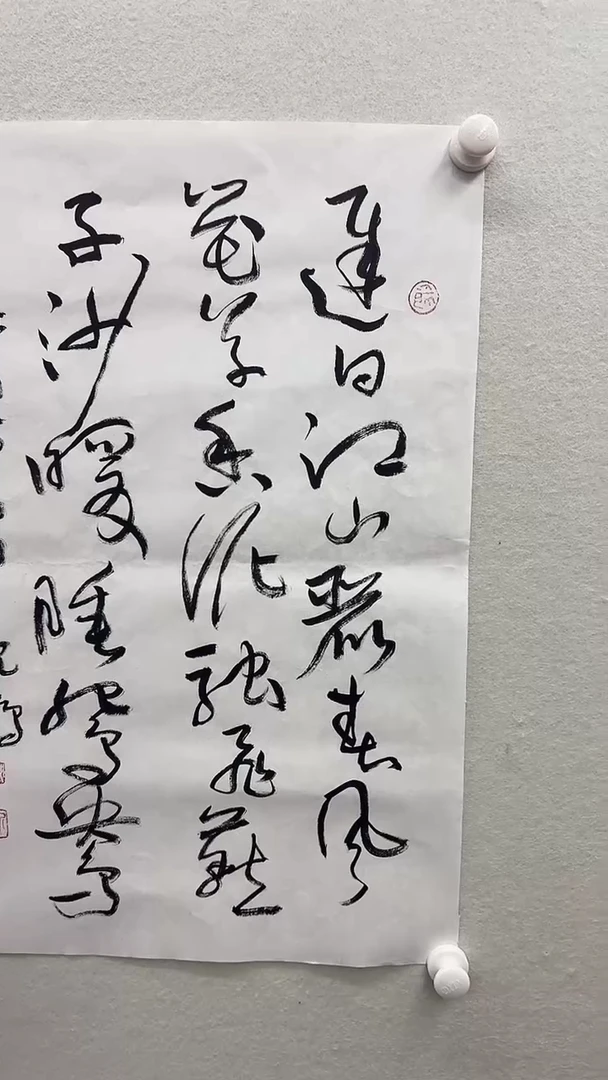 遲日江山麗春風
花草香泥融飛燕
子沙暖睡鴛鴦